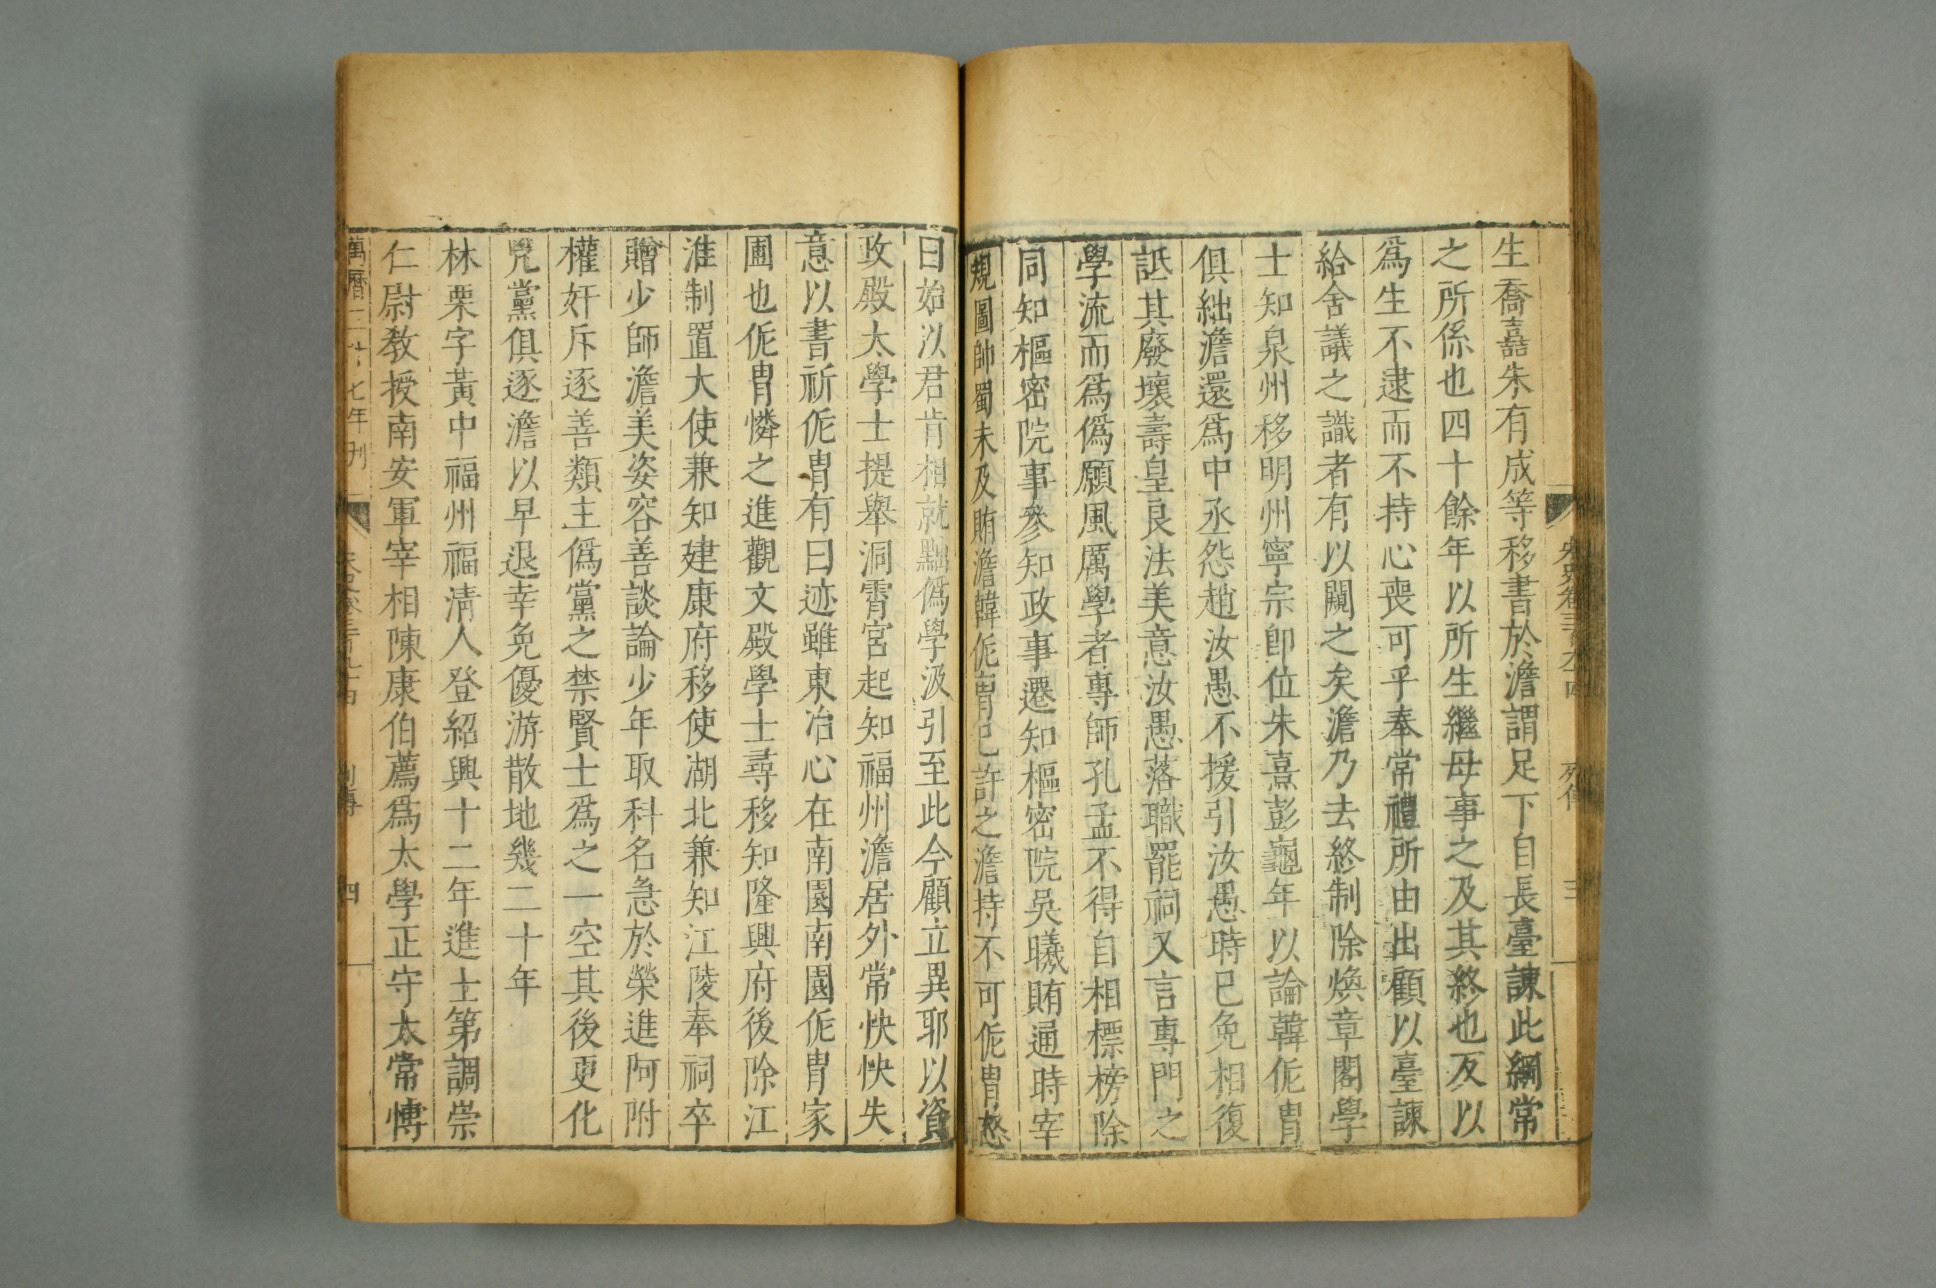 宋史卷三百九十四
列傳
三
生喬嚞朱有成等移書於澹謂足下自長臺諫此綱常
之所係也四十餘年以所生繼母事之及其終也反以
爲生不逮而不持心喪可乎奉常禮所由出顧以臺諫
給舍議之識者有以闚之矣澹乃去終制除煥章閣學
士知泉州移明州寧宗卽位朱熹彭龜年以論韓侂胄
俱絀澹還爲中丞怨趙汝愚不援引汝愚時已免相復
詆其廢壞壽皇良法美意汝愚落職罷祠又言專門之
學流而爲僞願風厲學者專師孔孟不得自相標榜除
同知樞密院事參知政事遷知樞密院吳曦賄通時宰
規圖帥蜀未及賄澹韓侂胄已許之澹持不可侂胄怒
曰始以君肯相就黜僞學汲引至此今顧立異耶以資
政殿大學士提舉洞霄宮起知福州澹居外常怏怏失
意以書祈侂胄有曰迹雖東冶心在南園南園侂胄家
圃也侂胄憐之進觀文殿學士尋移知隆興府後除江
淮制置大使兼知建康府移使湖北兼知江陵奉祠卒
贈少師澹美姿容善談論少年取科名急於榮進阿附
權奸斥逐善類主僞黨之禁賢士爲之一空其後更化
兇黨俱逐澹以早退幸免優游散地幾二十年
林栗字黃中福州福清人登紹興十二年進士第調崇
仁尉敎授南安軍宰相陳康伯薦爲太學正守太常博
萬曆二十七年刊
宋史卷三百九十四
列傳
四